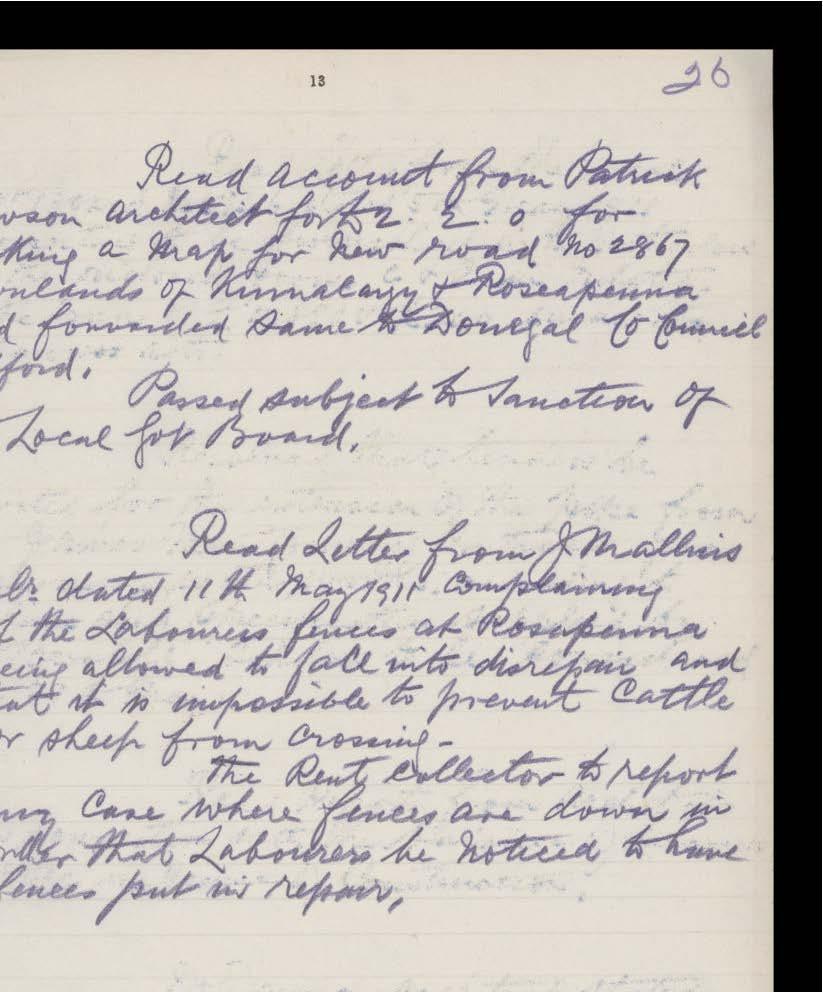 13
26
Read account from Patrick
wson Architect for £2. 2. 0 for
king a Map for New road No 2867
wnlands of & Roseapenna
d forwarded same to Donegal Co Council
fford.
Passed subject to Sanction of
Local Gov Board.
Read Letter from J Mallins
dated 11th May 1911 Complaining
f the Labourers fences at Rosapenna
eing allowed to fall into disrepair and
tat it is impossible to prevent Cattle
or sheep from crossing -
The Rent Collector to report
ny Case where fences are down in
order that Labourers be Noticed to have
fences put in repair,